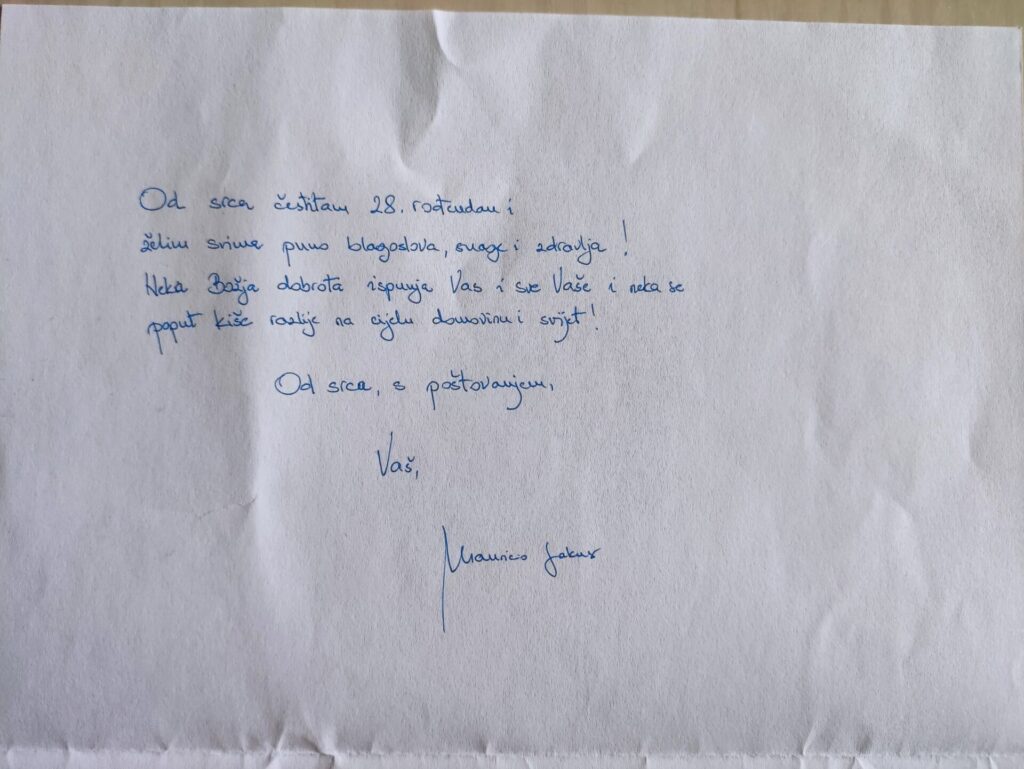 Od srca čestitam 28. rođendan i
želim svima puno blagoslova, snage i zdravlja!
Neka Božja dobrota ispunja Vas i sve Vaše i neka se
poput kiše razlije na cijelu domovinu i svijet!
Od srca, s poštovanjem,
Vaš,
Mauricio